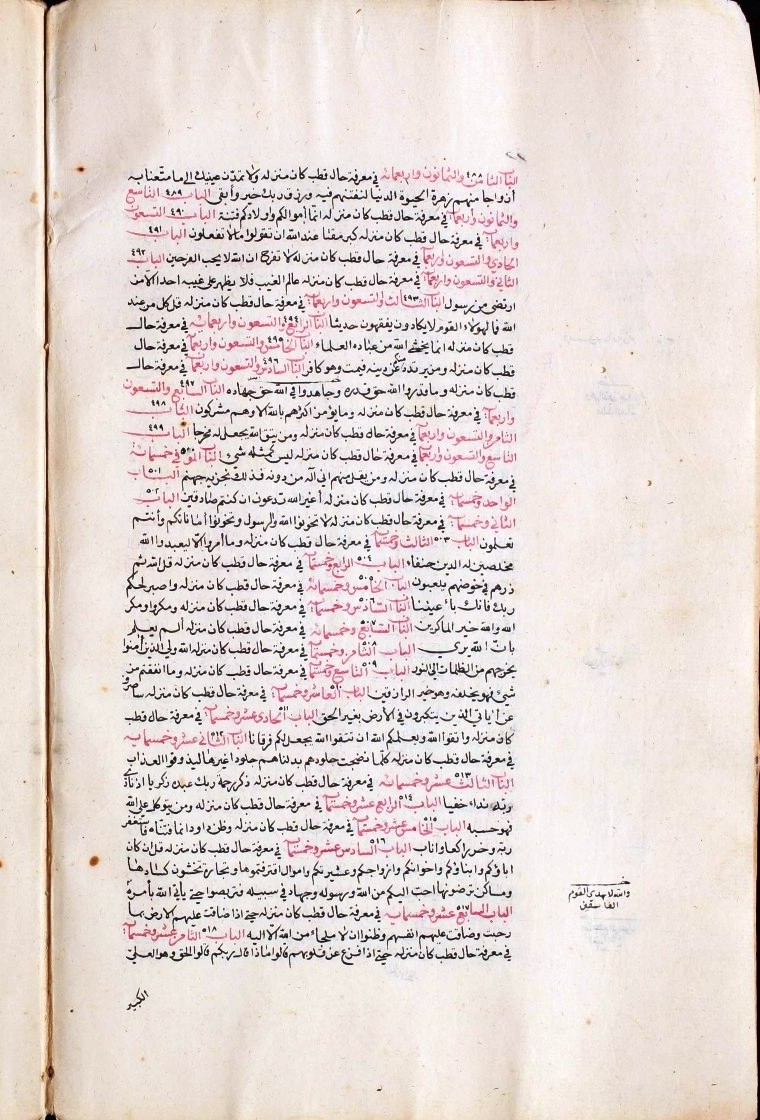 الباب ٤٨٨ الثامن والثمانون واربعمائة في معرفة حال قطب كان منزله ولا تمدن عينيك الى ما متعنا به
أزواجا منهم زهرة الحيوة الدنيا لنفتنهم فيه ورزق ربك خير وأبقى الباب ٤٨٩ التاسع
والثمانون واربعمائة في معرفة حال قطب كان منزله انما أموالكم واولادكم فتنة الباب ٤٩٠ التسعون
واربعمائة في معرفة حال قطب كان منزله كبر مقتا عند الله ان تقولوا مالا تفعلون الباب ٤٩١
الحادي والتسعون واربعمائة في معرفة حال قطب كان منزله لا تفرح ان الله لا يحب الفرحين الباب ٤٩٢
الثاني والتسعون واربعمائة في معرفة حال قطب كان منزله عالم الغيب فلا يظهر على غيبه احدا الا من
ارتضى من رسول الباب ٤٩٣ الثالث والتسعون واربعمائة في معرفة حال قطب كان منزله قل كل من عند
الله فما لهولاء القوم لا يكادون يفقهون حديثا الباب ٤٩٤ الرابع والتسعون واربعمائة في معرفة حال
قطب كان منزله انما يخشى الله من عباده العلماء الباب ٤٩٥ الخامس والتسعون واربعمائة في معرفة حال
قطب كان منزله ومن يرتدد منكم عن دينه فيمت وهو كافر الباب ٤٩٦ السادس والتسعون واربعمائة في معرفة حال
قطب كان منزله وما قدروا الله حق قدره وجاهدوا في الله حق جهاده الباب ٤٩٧ السابع والتسعون
واربعمائة في معرفة حال قطب كان منزله وما يؤمن اكثرهم بالله الا وهم مشركون الباب ٤٩٨
الثامن والتسعون واربعمائة في معرفة حال قطب كان منزله ومن يتق الله يجعل له مخرجا الباب ٤٩٩
التاسع والتسعون واربعمائة في معرفة حال قطب كان منزله ليس كمثله شئ الباب ٥٠٠ الموفي خمسمائة
في معرفة حال قطب كان منزله ومن يقل منهم اني اله من دونه فذلك نجزيه جهنم الباب ٥٠١
الواحد وخمسمائة في معرفة حال قطب كان منزله أغير الله تدعون ان كنتم صادقين الباب ٥٠٢
الثاني وخمسمائة في معرفة حال قطب كان منزله لا تخونوا الله والرسول وتخونوا أماناتكم وأنتم
تعلمون الباب ٥٠٣ الثالث وخمسمائة في معرفة حال قطب كان منزله وما أمروا الا ليعبدوا الله
مخلصين له الدين حنفاء الباب ٥٠٤ الرابع وخمسمائة في معرفة حال قطب كان منزله قل الله ثم
ذرهم في خوضهم يلعبون الباب ٥٠٥ الخامس وخمسمائة في معرفة حال قطب كان منزله واصبر لحكم
ربك فانك بأعيننا الباب ٥٠٦ السادس وخمسمائة في معرفة حال قطب كان منزله ومكروا ومكر
الله والله خير الماكرين الباب ٥٠٧ السابع وخمسمائة في معرفة حال قطب كان منزله ألم يعلم
بان الله يرى الباب ٥٠٨ الثامن وخمسمائة في معرفة حال قطب كان منزله الله ولي الذين آمنوا
يخرجهم من الظلمات الى النور الباب ٥٠٩ التاسع وخمسمائة في معرفة حال قطب كان منزله وما انفقتم من
شئ فهو يخلفه وهو خير الرازقين الباب العاشر وخمسمائة في معرفة حال قطب كان منزله سأصرف
عن آياتي الذين يتكبرون في الأرض بغير الحق الباب الحادي عشر وخمسمائة في معرفة حال قطب
كان منزله واتقوا الله ويعلمكم الله ان تتقوا الله يجعل لكم فرقانا الباب ٥١٢ الثاني عشر وخمسمائة
في معرفة حال قطب كان منزله كلما نضجت جلودهم بدلناهم جلودا غيرها ليذوقوا العذاب
الباب ٥١٣ الثالث عشر وخمسمائة في معرفة حال قطب كان منزله ذكر رحمة ربك عبده زكريا اذ نادى
ربه نداء خفيا الباب ٥١٤ الرابع عشر وخمسمائة في معرفة حال قطب كان منزله ومن يتوكل على الله
فهو حسبه الباب الخامس عشر وخمسمائة في معرفة حال قطب كان منزله وظن داود انما فتناه فاستغفر
ربه وخر راكعا واناب الباب ٥١٦ السادس عشر وخمسمائة في معرفة حال قطب كان منزله قل ان كان
اباؤكم وابناؤكم واخوانكم وازواجكم وعشيرتكم واموال اقترفتموها وتجارة تخشون كسادها
ومساكن ترضونها احب اليكم من الله ورسوله وجهاد في سبيله فتربصوا حتى يأتي الله بأمره
الباب ٥١٧ السابع عشر وخمسمائة في معرفة حال قطب كان منزله حتى اذا ضاقت عليهم الارض بما
رحبت وضاقت عليهم انفسهم وظنوا ان لا ملجاء من الله الا اليه الباب ٥١٨ الثامن عشر وخمسمائة
في معرفة حال قطب كان منزله حتى اذا فزع عن قلوبهم قالوا ماذا قال ربكم قالوا الحق وهو العلي
الكبير
والله لا يهدي القوم
الفاسقين